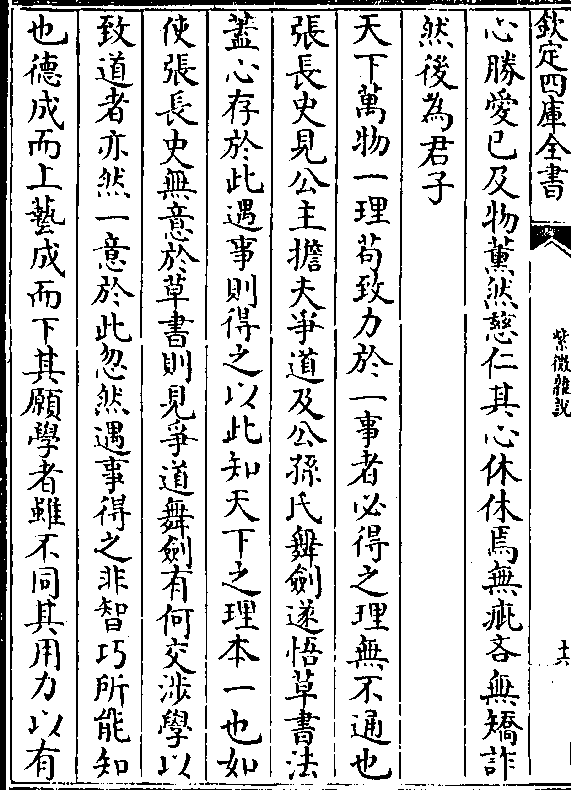 欽定四庫全書
紫微雜說
十六
心勝愛已及物薰然慈仁其心休休焉無疵吝無矯詐
然後為君子
天下萬物一理苟致力於一事者必得之理無不通也
張長史見公主擔夫爭道及公孫氏舞劍遂悟草書法
蓋心存於此遇事則得之以此知天下之理本一也如
使張長史無意於草書則見爭道舞劍有何交涉學以
致道者亦然一意於此忽然遇事得之非智巧所能知
也德成而上藝成而下其願學者雖不同其用力以有